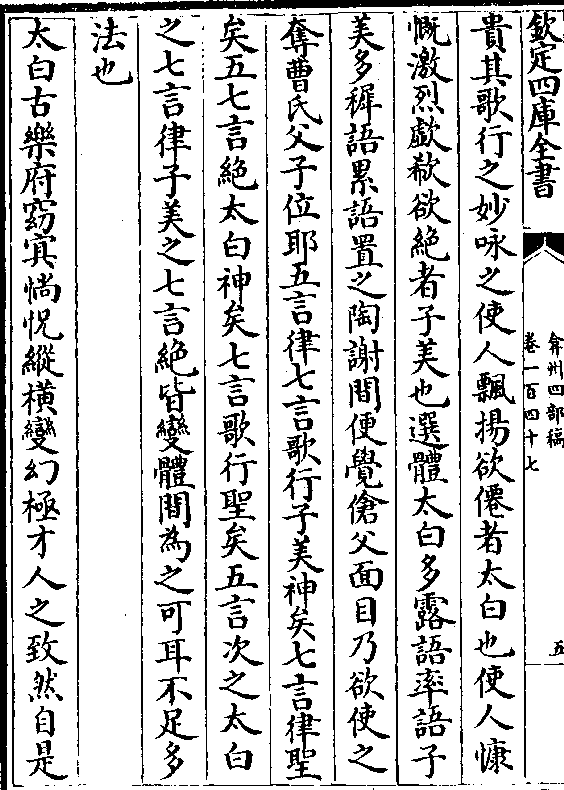 欽定四庫全書
弇州四部稿
卷一百四十七
五
貴其歌行之妙咏之使人飄揚欲僊者太白也使人慷
慨激烈歔欷欲絶者子美也選體太白多露語率語子
美多穉語累語置之陶謝間便覺傖父面目乃欲使之
奪曹氏父子位耶五言律七言歌行子美神矣七言律聖
矣五七言絶太白神矣七言歌行聖矣五言次之太白
之七言律子美之七言絶皆變體間為之可耳不足多
法也
太白古樂府窈冥惝怳縱橫變幻極才人之致然自是